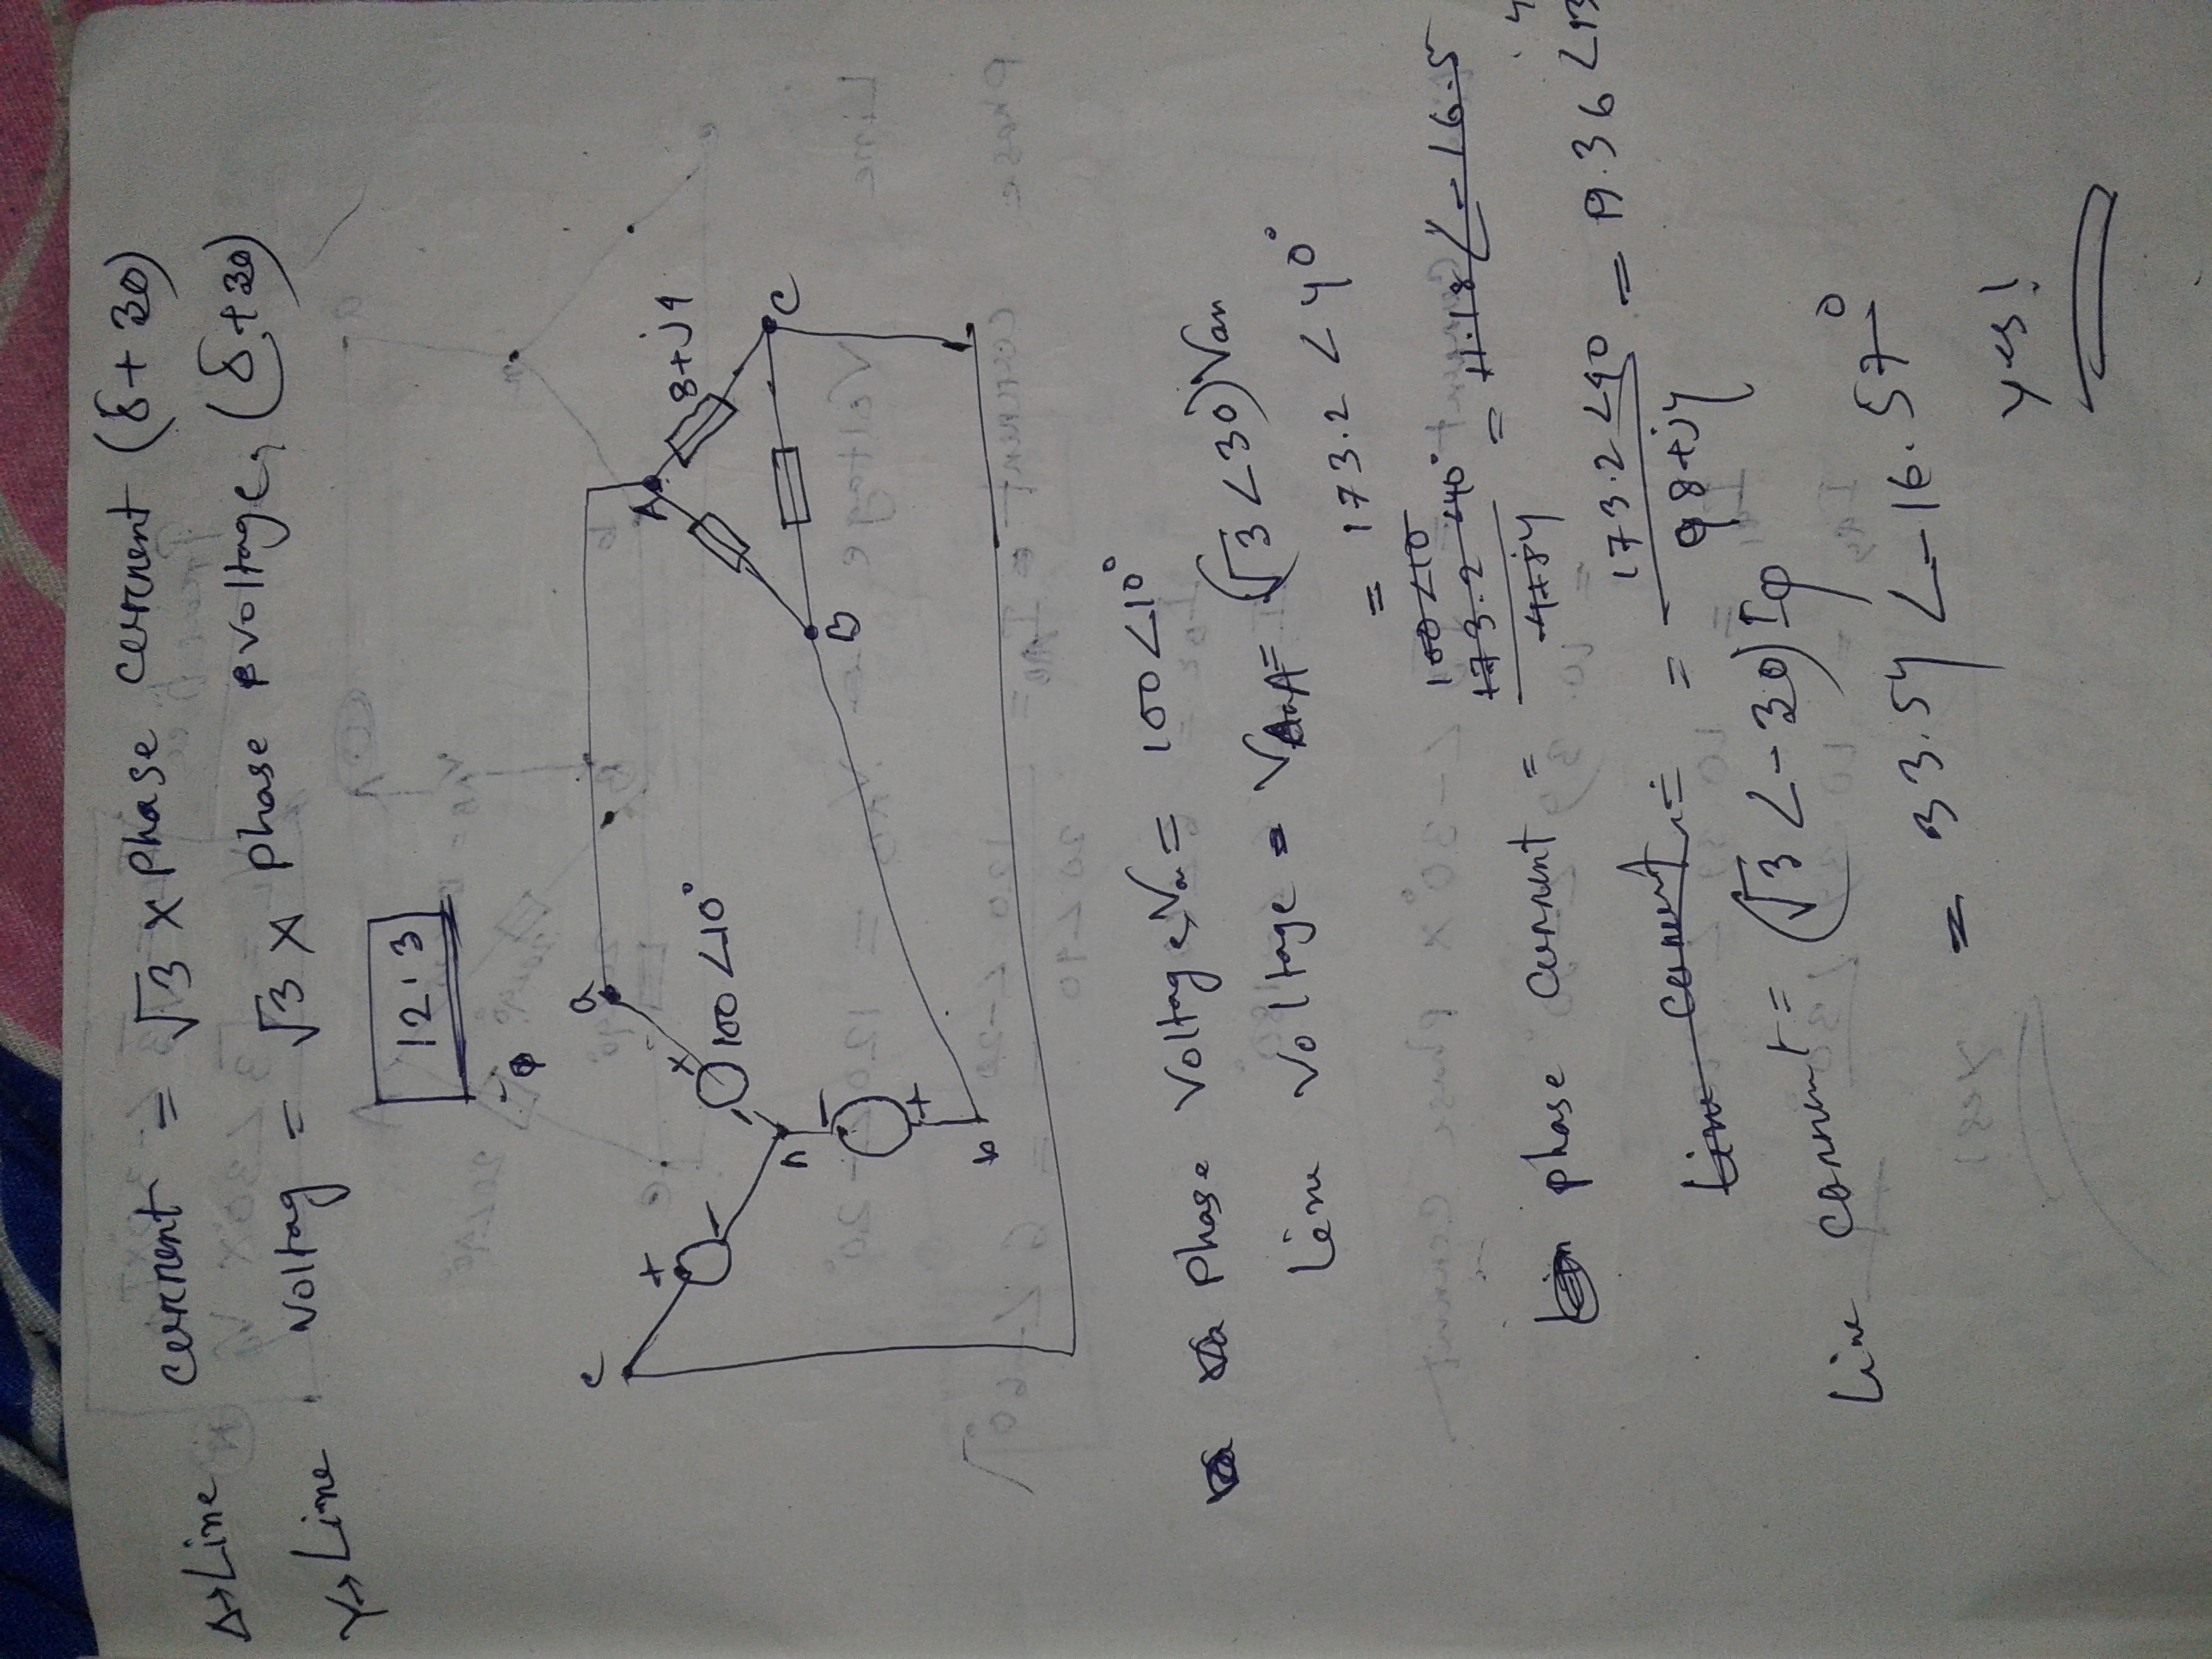 Δ→Line current = √3 x phase current (δ+30)
Y→Line voltag = √3 x phase voltage, (δ+30)
12.3
c
a
+
-
+
-
100∠10°
n
-
+
b
A
8+j4
B
C
Phase Voltage, Van = 100∠10°
Line voltage = VaA = (√3∠30) Van
= 173.2 ∠40°
100∠10
173.2 ∠40°
phase current = ─── = 11.18∠-16.5
4+j4
= 173.2∠40 / 8+j4 = 19.36∠13.4
Line current =
Line current = (√3∠-30) Iφ
= 33.54 ∠-16.57°
yes!